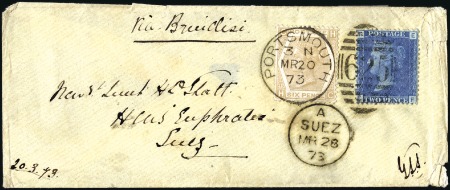 via Brindisi
PORTSMOUTH
3 N
MR 20
73
625
POSTAGE
TWO PENCE
SIX PENCE
Lieut
HMS Euphrates
Suez
A
SUEZ
MR 28
73
20.3.73